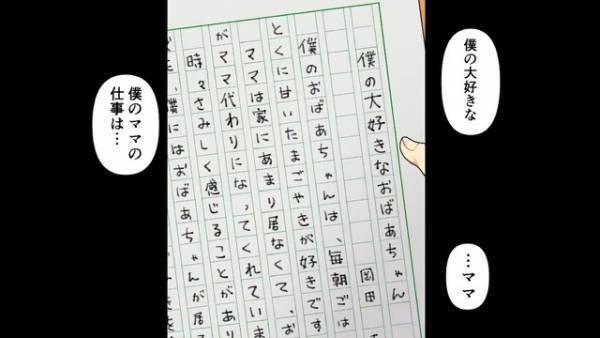 僕の大好きな
…ママ
僕の大好きなおばあちゃん
岡田
僕のおばあちゃんは、毎朝ごは
とくに甘いたまごやきが好きです
ママは家にあまり居なくて、お
がママ代わりになってくれていま
時々さみしく感じることがあり
、僕にはおばあちゃんが居
僕のママの
仕事は…